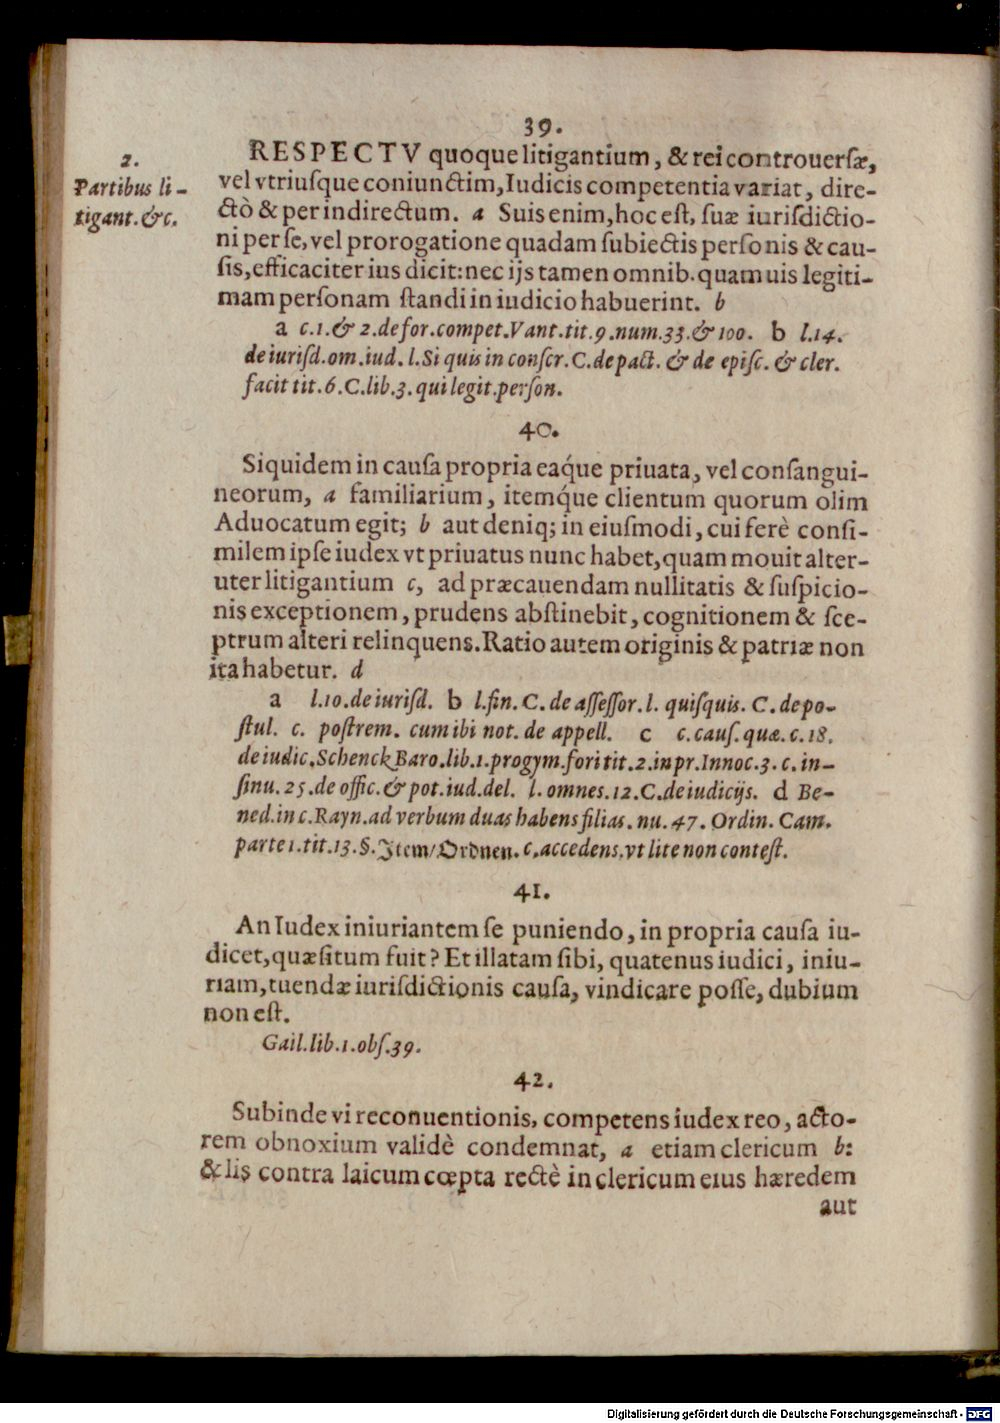 39.
2.
Partibus li-
tigant. &c.
RESPECTV quoque litigantium, & rei controuersæ,
vel vtriusque coniunctim, Iudicis competentia variat, dire-
ctò & per indirectum. a Suis enim, hoc est, suæ iurisdictio-
ni per se, vel prorogatione quadam subiectis personis & cau-
sis, efficaciter ius dicit: nec ijs tamen omnib. quamuis legiti-
mam personam standi in iudicio habuerint. b
a c.1. & 2. de for. compet. Vant. tit. 9. num. 33. & 100. b l. 14.
de iurisd. om. iud. l. Si quis in conscr. C. de pact. & de episc. & cler.
facit tit. 6. C. lib. 3. qui legit. person.
40.
Siquidem in causa propria eaq́ue priuata, vel consangui-
neorum, a familiarium, itemq́ue clientum quorum olim
Aduocatum egit; b aut deniq; in eiusmodi, cui ferè consi-
milem ipse iudex vt priuatus nunc habet, quam mouit alter-
uter litigantium c, ad præcauendam nullitatis & suspicio-
nis exceptionem, prudens abstinebit, cognitionem & sce-
ptrum alteri relinquens. Ratio autem originis & patriæ non
ita habetur. d
a l. 10. de iurisd. b l. fin. C. de assessor. l. quisquis. C. de po-
stul. c. postrem. cum ibi not. de appell. c c. caus. quæ. c. 18.
de iudic. Schenck Baro. lib. 1. progym. fori tit. 2. in pr. Innoc. 3. c. in-
sinu. 25. de offic. & pot. iud. del. l. omnes. 12. C. de iudicijs. d Be-
ned. in c. Rayn. ad verbum duas habens filias. nu. 47. Ordin. Cam.
parte 1. tit. 13. §. Item/ Ordnen. c. accedens. vt lite non contest.
41.
An Iudex iniuriantem se puniendo, in propria causa iu-
dicet, quæsitum fuit? Et illatam sibi, quatenus iudici, iniu-
riam, tuendæ iurisdictionis causa, vindicare posse, dubium
non est.
Gail. lib. 1. obs. 39.
42.
Subinde vi reconuentionis, competens iudex reo, acto-
rem obnoxium validè condemnat, a etiam clericum b:
& lis contra laicum cœpta rectè in clericum eius hæredem
aut
Digitalisierung gefördert durch die Deutsche Forschungsgemeinschaft - DFG